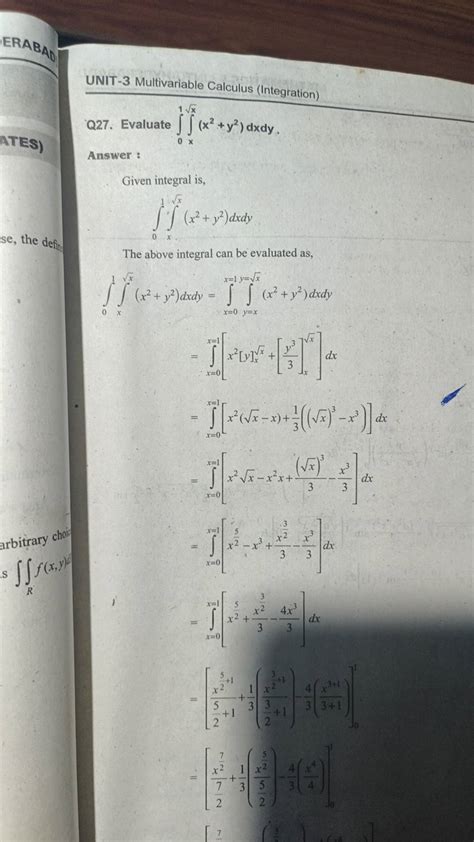 ERABAD
ATES)
se, the defin
arbitrary choic
s ∫∫ f(x, y)
R
UNIT-3 Multivariable Calculus (Integration)
Q27. Evaluate ∫₀¹ ∫ₓ^√x (x² + y²) dxdy.
Answer :
Given integral is,
∫₀¹ ∫ₓ^√x (x² + y²)dxdy
The above integral can be evaluated as,
∫₀¹ ∫ₓ^√x (x² + y²)dxdy = ∫_{x=0}^{x=1} ∫_{y=x}^{y=√x} (x² + y²)dxdy
= ∫_{x=0}^{x=1} [x²[y]ₓ^√x + [y³/3]ₓ^√x] dx
= ∫_{x=0}^{x=1} [x²(√x − x) + 1/3((√x)³ − x³)] dx
= ∫_{x=0}^{x=1} [x²√x − x²x + (√x)³/3 − x³/3] dx
= ∫_{x=0}^{x=1} [x^(5/2) − x³ + x^(3/2)/3 − x³/3] dx
= ∫_{x=0}^{x=1} [x^(5/2) + x^(3/2)/3 − 4x³/3] dx
= [x^(5/2+1)/(5/2+1) + 1/3(x^(3/2+1)/(3/2+1)) − 4/3(x^(3+1)/(3+1))]₀¹
= [x^(7/2)/(7/2) + 1/3(x^(5/2)/(5/2)) − 4/3(x⁴/4)]₀¹